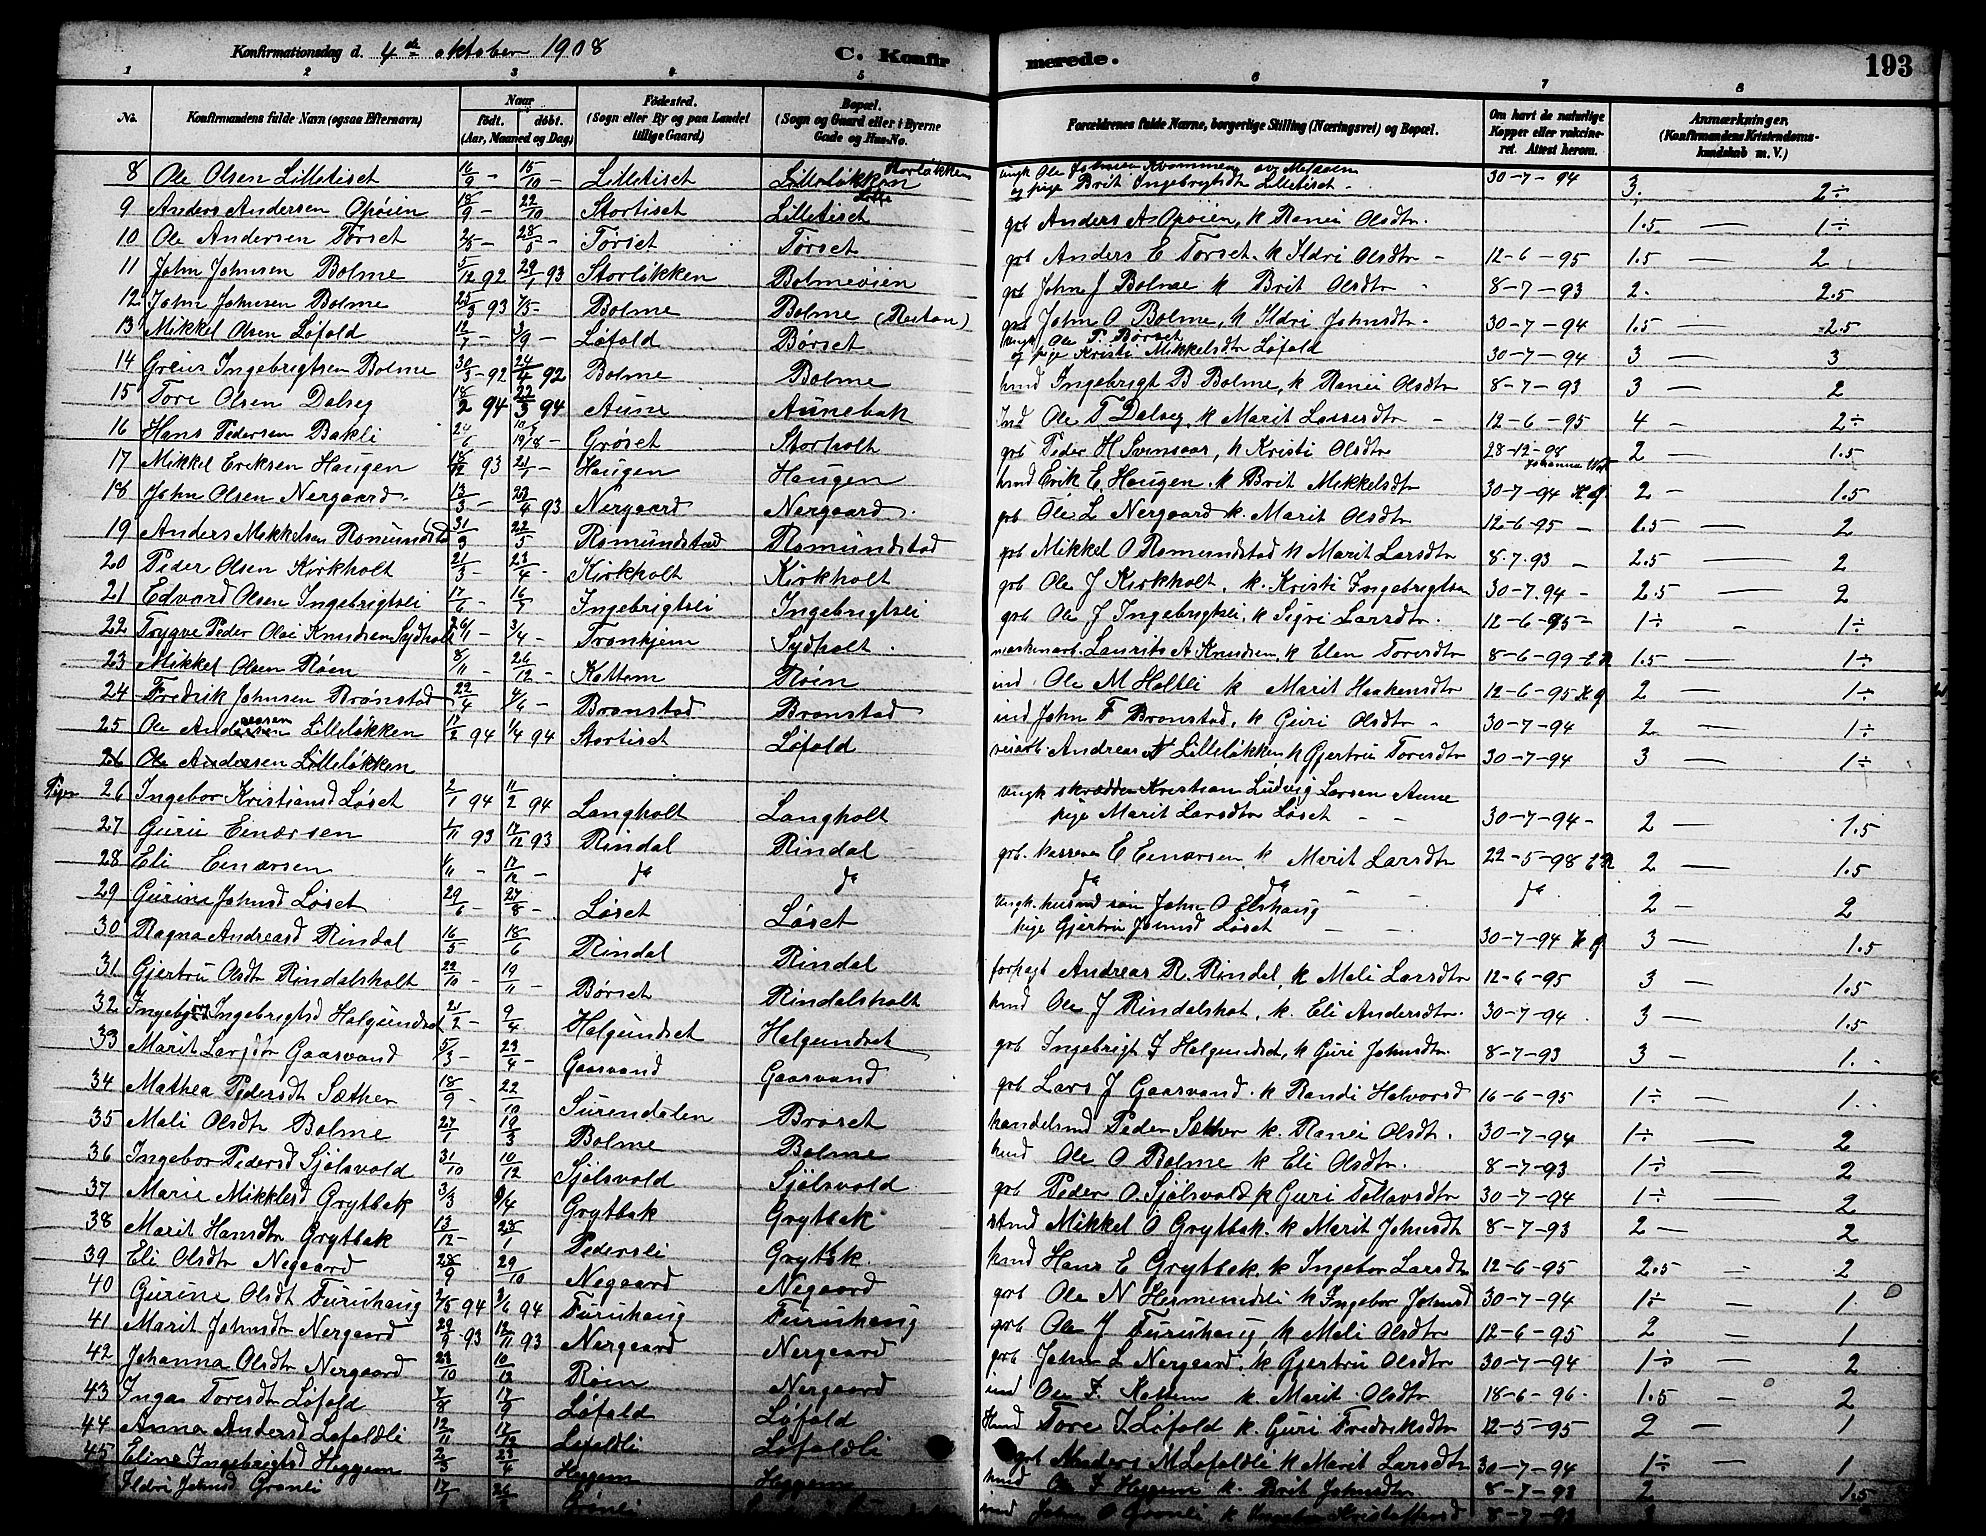 Konfirmationsdag d. 4de oktober 1908
C. Konfirmerede.
193
1 2 3 4 5 6 7 8
No. Konfirmandens fulde Navn (ogsaa Efternavn) Naar født. døbt. (Aar, Maaned og Dag) Fødested. (Sogn eller By og paa Landet tillige Gaard) Bopæl. (Sogn og Gaard eller i Byerne Gade og Hus-No. Forældrenes fulde Navne, borgerlige Stilling (Næringsvei) og Bopæl. Om havt de naturlige Kopper eller vaccineret. Attest herom. Anmærkninger. (Konfirmandens Kristendomskundskab m. V.)
8 Ole Olsen Lilletiset 16/9 - 15/10 - Lilletiset Lilleløkken Storløkken ungk Ole Johnsen Kvammen og pige Brit Ingebrigtsdtr Lilletiset 30-7-94 3. 2÷
9 Anders Andersen Opøien 18/9 - 22/10 Stortiset Lilletiset grb Anders A Opøien, k Ranei Olsdtr. 1.5 1÷
10 Ole Andersen Tørset Tørset Tørset grb Anders E Torset. k Ildri Olsdtr 12-6-95 1.5 2
11 John Johnsen Bolme 5/12 92 29/1 93 Storløkken Bolmeøien grb John J Bolme k Brit Olsdtr 8-7-93 2. 2.5
12 John Johnsen Bolme 25/3 93 7/5 - Bolme Bolme grb John O Bolme, k Ildri Johnsdtr 30-7-94 1.5 2.5
13 Mikkel Olsen Løfald 3/9 - Løfald Børset ungk Ole P. Børset og pige Kristi Mikkelsdtr Løfald 30-7-94 3 3
14 Greier Ingebrigtsen Bolme 30/3 - 92 24/4 92 Bolme Bolme hmd Ingebrigt B Bolme, k Ranei Olsdtr 8-7-93 3 2
15 Tore Olsen Dalseg 18/2 94 22/3 94 Aune Aunebak Ind Ole T Dalseg, k Marit Larsedtr 12-6-95 4 2÷
16 Hans Pedersen Bakli 24/6 Grøset Storholt grb Peder H Svinsaas, k Kristi Olsdtr 28-12-98 2 1.5
17 Mikkel Eriksen Haugen 18/12 93 21/1 - Haugen Haugen hmd Erik E. Haugen. k Brit Mikkelsdtr 30-7-94 2 1.5
18 John Olsen Nergaard 13/3 - 23/4 93 Nergaard Nergaard grb Ole L Nergaard k. Marit Olsdtr 12-6-95 1.5 2
19 Anders Mikkelsen Romundstad 31/3 22/5 Romundstad Romundstad grb Mikkel O Romundstad k Marit Larsdtr 8-7-93 2.5 2
20 Peder Olsen Kirkholt 21/3 - 23/4 - Kirkholt Kirkholt grb Ole J Kirkholt, k. Kristi Ingebrigtsen 30-7.94 2.5 2
21 Edvard Olsen Ingebrigtsli 17/6 - 16/7 Ingebrigtsli Ingebrigtsli grb Ole J Ingebrigtsli, k Sigri Larsdtr. 12-6-95 1÷ 1÷
22 Trygve Peder Olai Knudsen Sydholt 26/11 - 3/4 - Tronhjem Sydholt maskinarb. Laurits A Knudsen, k Elen Toresdtr 8-6-99 1.5 1÷
23 Mikkel Olsen Røen 8/11 - 26/12 - Kattem Røin ind Ole M Holtli k Marit Haakensdtr 12-6-95 2 1÷
24 Fredrik Johnsen Brønstad 22/4 4/6 - Brønstad Brønstad ind John F Bronstad, k Guri Olsdtr 30-7-94 2 1÷
25 Ole Andreasen Lilleløkken 17/2 94 1/4 94 Stortiset Løfald veiarb. Andreas Lilleløkken, k Gjertru Toresdtr 30-7-94 3 1÷
26 Ole Andersen Lilleløkken
Piger 26 Ingebor Kristiansd Løset 2/1 94 11/2 94 Langholt Langholt ungk skrædder Kristian Ludvig Larsen Aune pige Marit Larsdtr Løset 30-7-94 2 1.5
27 Guru Einarsen 1/11 93 17/12 93 Rindal Rindal grb. E Einarsen, k Marit Larsdtr 22-5-98 2 1.5
28 Eli Einarsen 1/11 - 17/12 - do do do do do 2 2
29 Gurine Johnsd Løset 29/6 - 27/8 - Løset Løset ungk. John O Elshaug pige Gjertru Johnsd Løset 30-7-94 3 1.5
30 Ragna Andreasd Rindal 16/5 18/6 Rindal Rindal forpagt Andreas R. Rindal, k Mali Larsdtr 12-6-95 3 1.5
31 Gjertru Olsdtr Rindalsholt 22/10 - 19/11 Børset Rindalsholt hmd Ole J Rindalsholt, k. Eli Andersdtr. 30-7-94 3 1.5
32 Ingebjør Ingebrigtsd Halgundset 21/2 - 9/4 Halgundset Halgundset grb Ingebrigt J Halgundset, k Guri Johnsdtr. 8-7-93 3 1.
33 Marit Larsdtr Gaasvand 5/3 - 23/4 - Gaasvand Gaasvand grb Lars J Gaasvand. k Randi Halvorsd 16-6-95 1÷ 1..
34 Mathea Pedersdtr Sæther 18/9 - 22/10 Surendalen Brøset handelsmd Peder Sæther k. Ranei Olsdtr. 30-7-94 1÷ 2
35 Mali Olsdtr Bolme 27/1 19/3 Bolme Bolme hmd Ole O Bolme k Eli Olsdtr. 8-7-93 1÷ 2
36 Ingebor Pedersd Sjølsvold 31/10 10/12 Sjølsvold Sjølsvold grb Peder O. Sjølsvold k Guri Tollavsdtr 30-7-94 1÷ 2
37 Marie Mikkelsd Grytbak 3/3 9/4 Grytbak Grytbak Mikkel O Grytbak. k Marit Johnsdtr 8-7-93 2 2
38 Marit Hansdtr Grytbak 13/12 - 28/1 Pedersli Grytbak hmd Hans E Grytbak, k Ingebor Larsdtr 12-6-95 2.5 2
39 Eli Olsdtr Negaard 28/9 29/10 Negaard Negaard grb Ole N k Ingebor Johnsd 30-7-94 1÷ 1
40 Gurine Olsdt Furuhaug 2/5 94 3/6 94 Furuhaug Furuhaug grb Ole J Furuhaug k Mali Olsdtr 12-6-95 2 1
41 Marit Johnsdtr Nergaard 29/9 93 12/11 93 Nergaard Nergaard grb John L Nergaard, k Gjertru Olsdtr 30-7-94 1÷ 2
42 Johanna Olsdtr Nergaard 23/10 10/12 Røin Nergaard ind Ole F. Kattem k. Marit Olsdtr 18-6-96. 1.5 2
43 Inga Toresdtr Løfald 7/8 17/9 Løfald Løfald Hmd Tore J Løfald k. Guri Fredriksdtr 12-5-95 2 1
44 Anna Andersd Løfaldli 12/11 17/12 Løfaldli Løfaldli grb Anders M Løfaldli k Marit Larsdtr 30-7-94 1÷ 1
45 Eline Ingebrigtsd Heggem 2/3 23/4 Heggem Heggem hmd Ole F Heggem k. Brit Johnsdtr 8-7-93 2 1.5
Ildri Johnsd Grønli Grønli ind John O Grønli k Kristoffersd 8-7-93